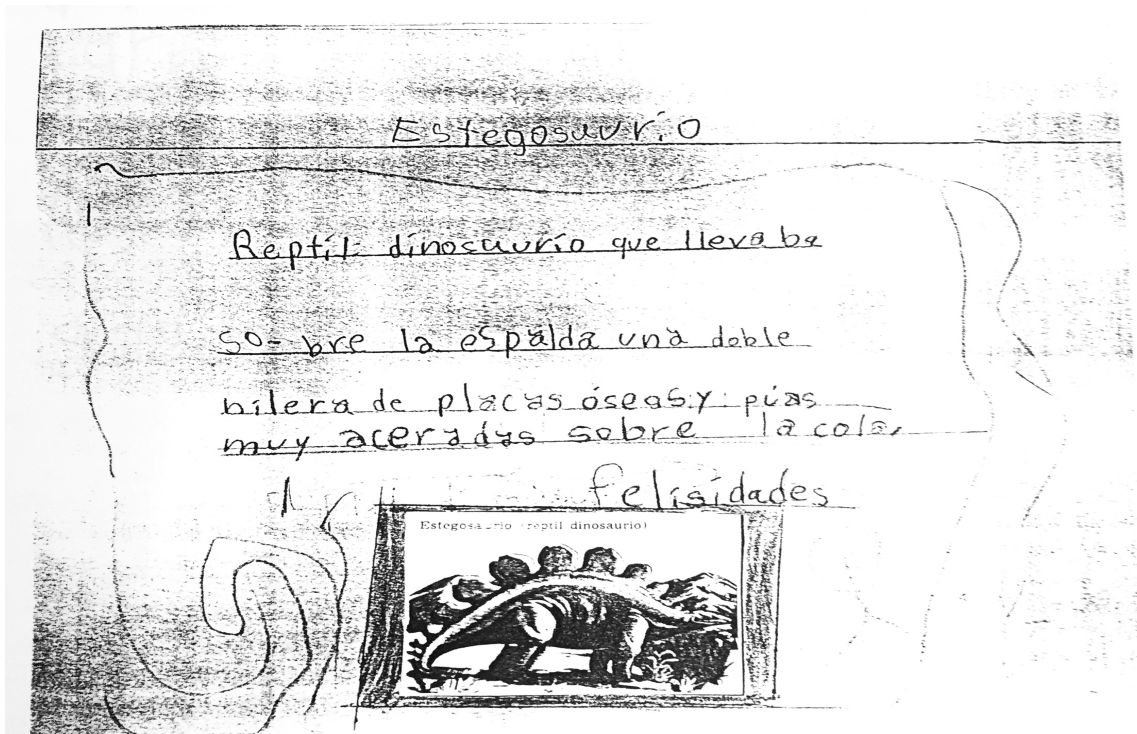 Estegosaurio
Reptil: dinosaurio que llevaba
so- bre la espalda una doble
hilera de placas óseas y púas
muy aceradas sobre la cola.
felisidades
Estegosaurio (reptil dinosaurio)